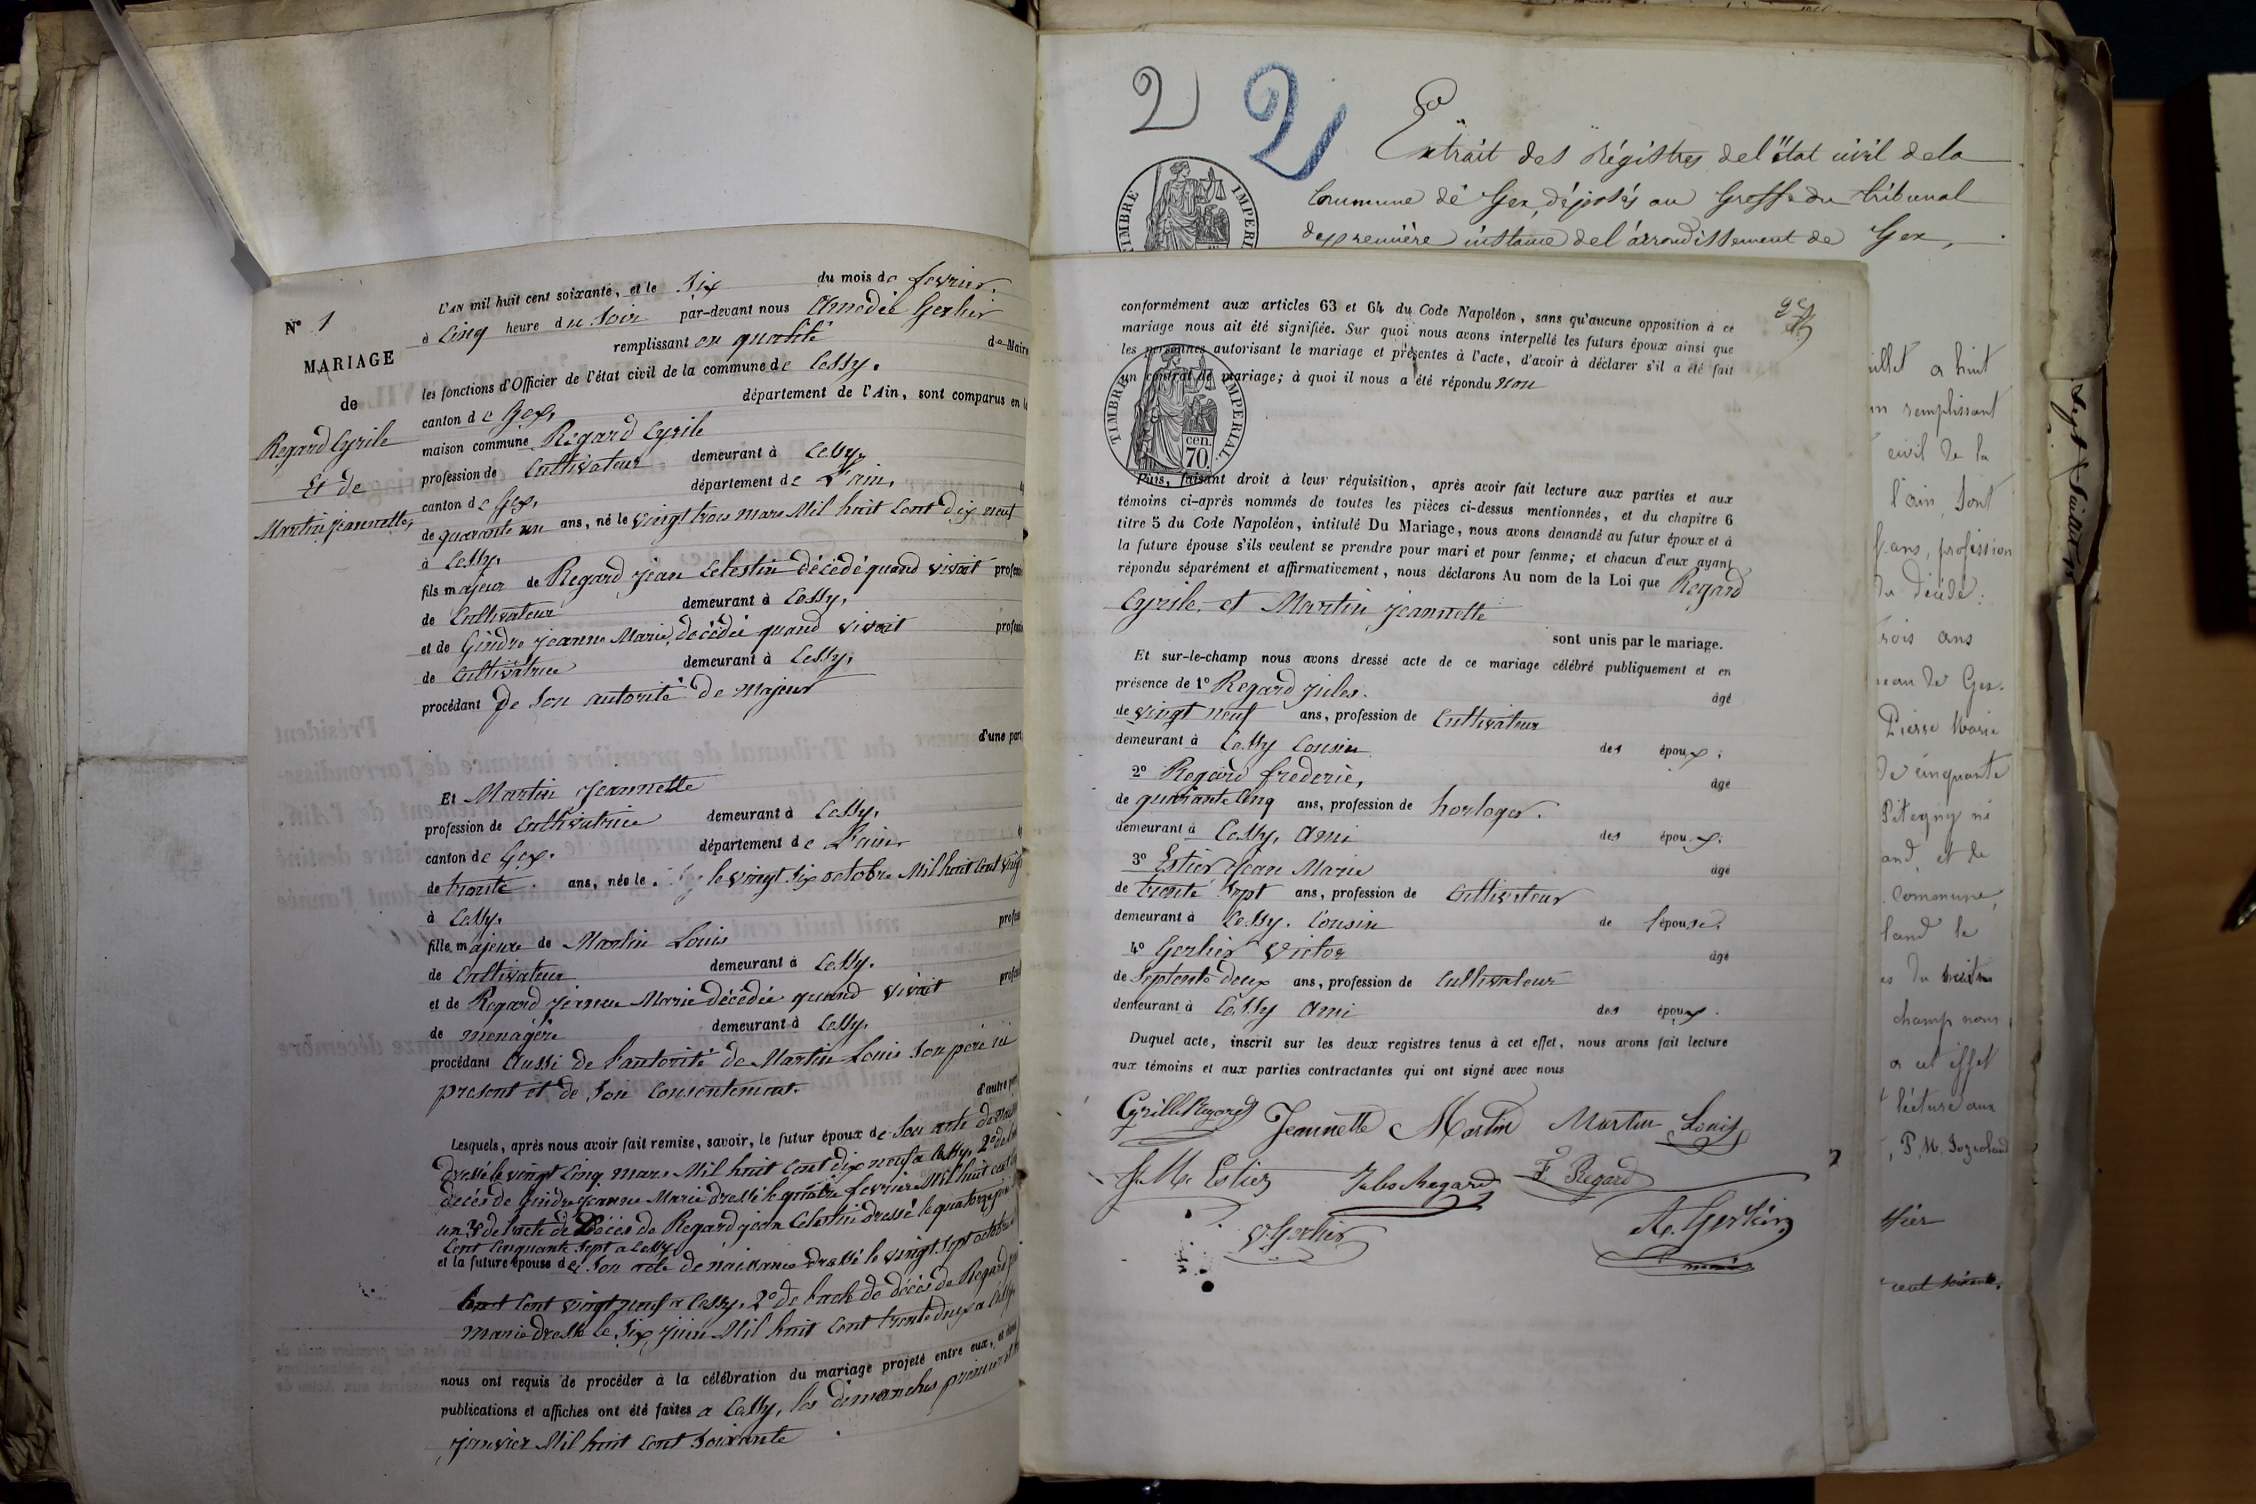 N° 1
MARIAGE
de
Regard Cyrile
Et de
Martin Jeannette,
L'AN mil huit cent soixante, et le Six du mois de fevrier,
à Cinq heure du Soir par-devant nous Amedée Gerlier
remplissant en qualité de Maire
les fonctions d'Officier de l'état civil de la commune de Cessy.
canton de Gex, département de l'Ain, sont comparus en la
maison commune Regard Cyrile
profession de Cultivateur demeurant à Cessy,
canton de Gex, département de L'ain,
de quarante un ans, né le vingt trois mars Mil huit Cent dix neuf
à Cessy.
fils majeur de Regard jean Celestin décédé quand vivait profess
de Cultivateur demeurant à Cessy,
et de Gindre jeanne Marie, décédée quand vivait profess
de Cultivatrice demeurant à Cessy,
procédant de Son autorité de majeur
d'une part,
Et Martin Jeannette
profession de Cultivatrice demeurant à Cessy,
canton de Gex. département de L'ain
de trente ans, née le vingt Six octobre Mil huit Cent vingt
à Cessy,
fille majeure de Martin Louis profess
de Cultivateur demeurant à Cessy.
et de Regard jeanne Marie décédée quand vivait profess
de menagère demeurant à Cessy,
procédant Aussi de l'autorité de Martin Louis Son père ici
présent et de Son Consentement.
d'autre part
Lesquels, après nous avoir fait remise, savoir, le futur époux de Son acte de
dressé le vingt Cinq mars Mil huit Cent dix neuf a Cessy, 2° de
décès de Gindre jeanne Marie dressé le quatre fevrier Mil huit cent
un 3° de l'acte de Décès de Regard jean Celestin dressé le quatorze
Cent Cinquante Sept a Cessy
et la future épouse de Son acte de naissance dressé le vingt Sept octobre
huit Cent vingt neuf a Cessy, 2° de l'acte de décès de Regard
marie dressé le Six juin Mil huit Cent trente deux a Cessy
nous ont requis de procéder à la célébration du mariage projeté entre eux, et dont
publications et affiches ont été faites a Cessy, les dimanches premier et
janvier Mil huit Cent Soixante
2 2
Extrait des Régistres de l'état civil de la
Commune de Gex, déposés au Greffe du tribunal
de première instance de l'arrondissement de Gex,
TIMBRE IMPERI
conformément aux articles 63 et 64 du Code Napoléon, sans qu'aucune opposition à ce
mariage nous ait été signifiée. Sur quoi nous avons interpellé les futurs époux ainsi que
les personnes autorisant le mariage et présentes à l'acte, d'avoir à déclarer s'il a été fait
un contrat de mariage; à quoi il nous a été répondu Non
TIMBRE IMPERIAL.
cen.
70.
Puis, faisant droit à leur réquisition, après avoir fait lecture aux parties et aux
témoins ci-après nommés de toutes les pièces ci-dessus mentionnées, et du chapitre 6
titre 5 du Code Napoléon, intitulé Du Mariage, nous avons demandé au futur époux et à
la future épouse s'ils veulent se prendre pour mari et pour femme; et chacun d'eux ayant
répondu séparément et affirmativement, nous déclarons Au nom de la Loi que Regard
Cyrile et Martin jeannette
sont unis par le mariage.
Et sur-le-champ nous avons dressé acte de ce mariage célébré publiquement et en
présence de 1° Regard Jules. âgé
de vingt neuf ans, profession de Cultivateur
demeurant à Cessy Cousin des époux;
2° Regard frederic, âgé
de quarante Cinq ans, profession de horloger.
demeurant à Cessy, Ami des époux;
3° Estier Jean Marie âgé
de trente Sept ans, profession de Cultivateur
demeurant à Cessy. Cousin de l'épouse;
4° Gerlier Victor âgé
de Septante deux ans, profession de Cultivateur
demeurant à Cessy Ami des époux.
Duquel acte, inscrit sur les deux registres tenus à cet effet, nous avons fait lecture
aux témoins et aux parties contractantes qui ont signé avec nous
Cyrille Regard Jeannette Martin Martin Louis
J. M. Estier Jules Regard F. Regard
V. Gerlier A. Gerlier
maire
uillet a huit
remplissant
civil de la
l'ain, Sont
ans, profession
du décédé.
trois ans
de Gex.
Pierre Marie
de cinquante
and, et de
Commune,
land le
champ nous
a cet effet
lecture aux
cent soixante.